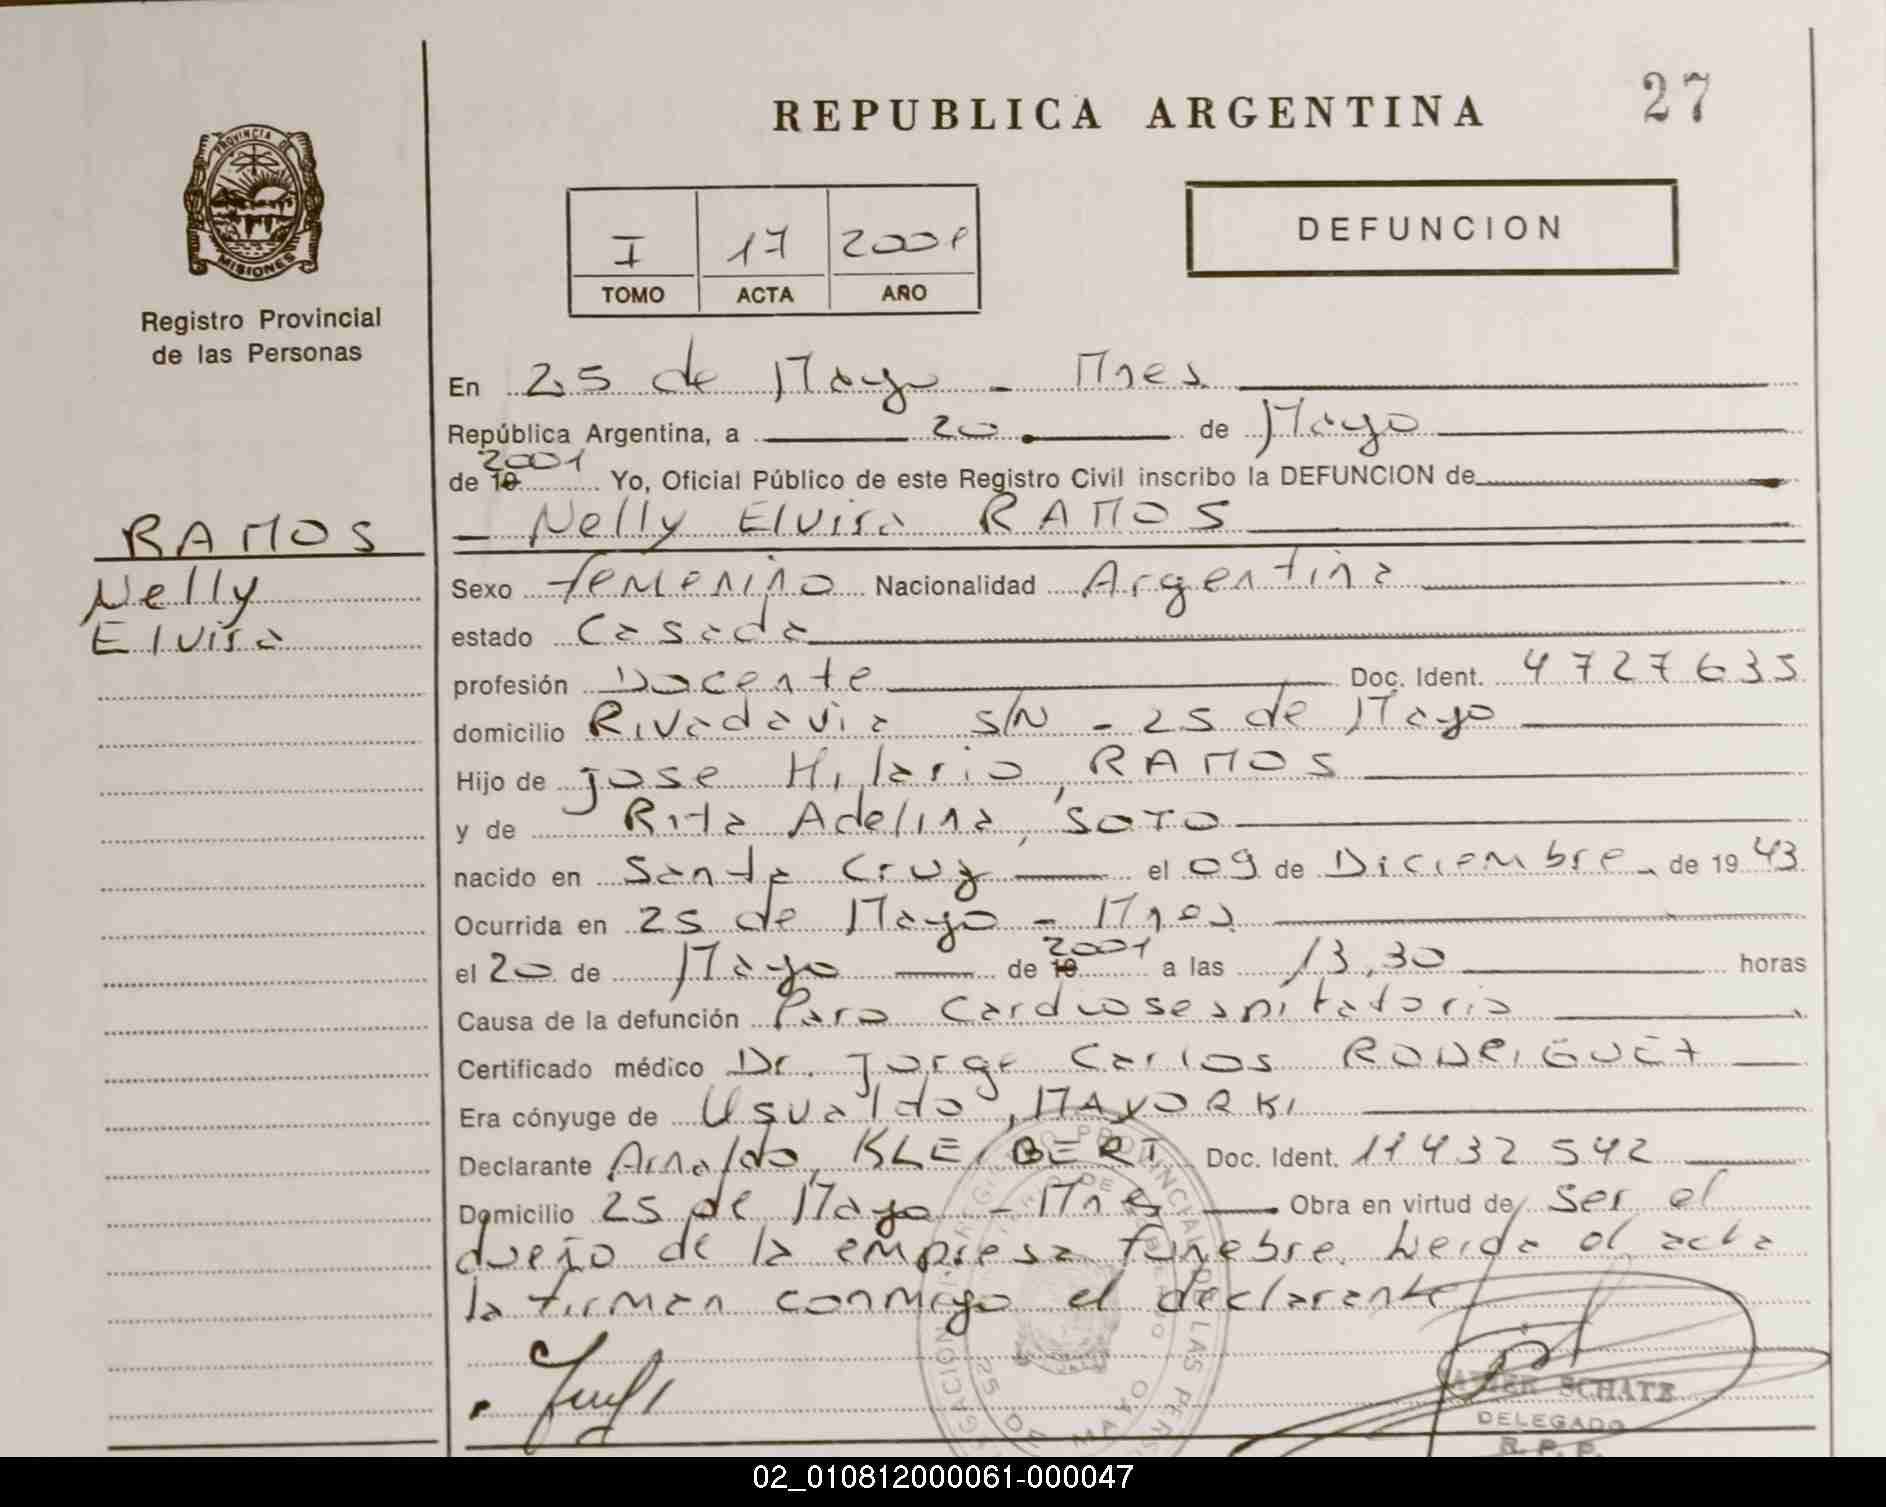 REPUBLICA ARGENTINA
27
PROVINCIA DE
MISIONES
Registro Provincial
de las Personas
I 17 2001
TOMO ACTA AÑO
DEFUNCION
En 25 de Mayo - Mnes
República Argentina, a 20 de Mayo
2001
de 19 Yo, Oficial Público de este Registro Civil inscribo la DEFUNCION de
Nelly Elvira RAMOS
RAMOS
Nelly
Elvira
Sexo femenino Nacionalidad Argentina
estado Casada
profesión Docente Doc. Ident. 4727635
domicilio Rivadavia S/N - 25 de Mayo
Hijo de Jose Hilario, RAMOS
y de Rita Adelina, SOTO
nacido en Santa Cruz el 09 de Diciembre de 1943
Ocurrida en 25 de Mayo - Mnes
2001
el 20 de Mayo de 19 a las 13,30 horas
Causa de la defunción Paro Cardiosespitatorio
Certificado médico Dr. Jorge Carlos RODRIGUEZ
Era cónyuge de Usualdo, MAYORKI
Declarante Arnaldo, KLEIBERT Doc. Ident. 11432542
Domicilio 25 de Mayo - Mnes Obra en virtud de Ser el
dueño de la empresa funebre. Leida el acta
la firman conmigo el declarante
SCHATZ
DELEGADO
R. P. P.
25 DE MAYO
02_010812000061-000047